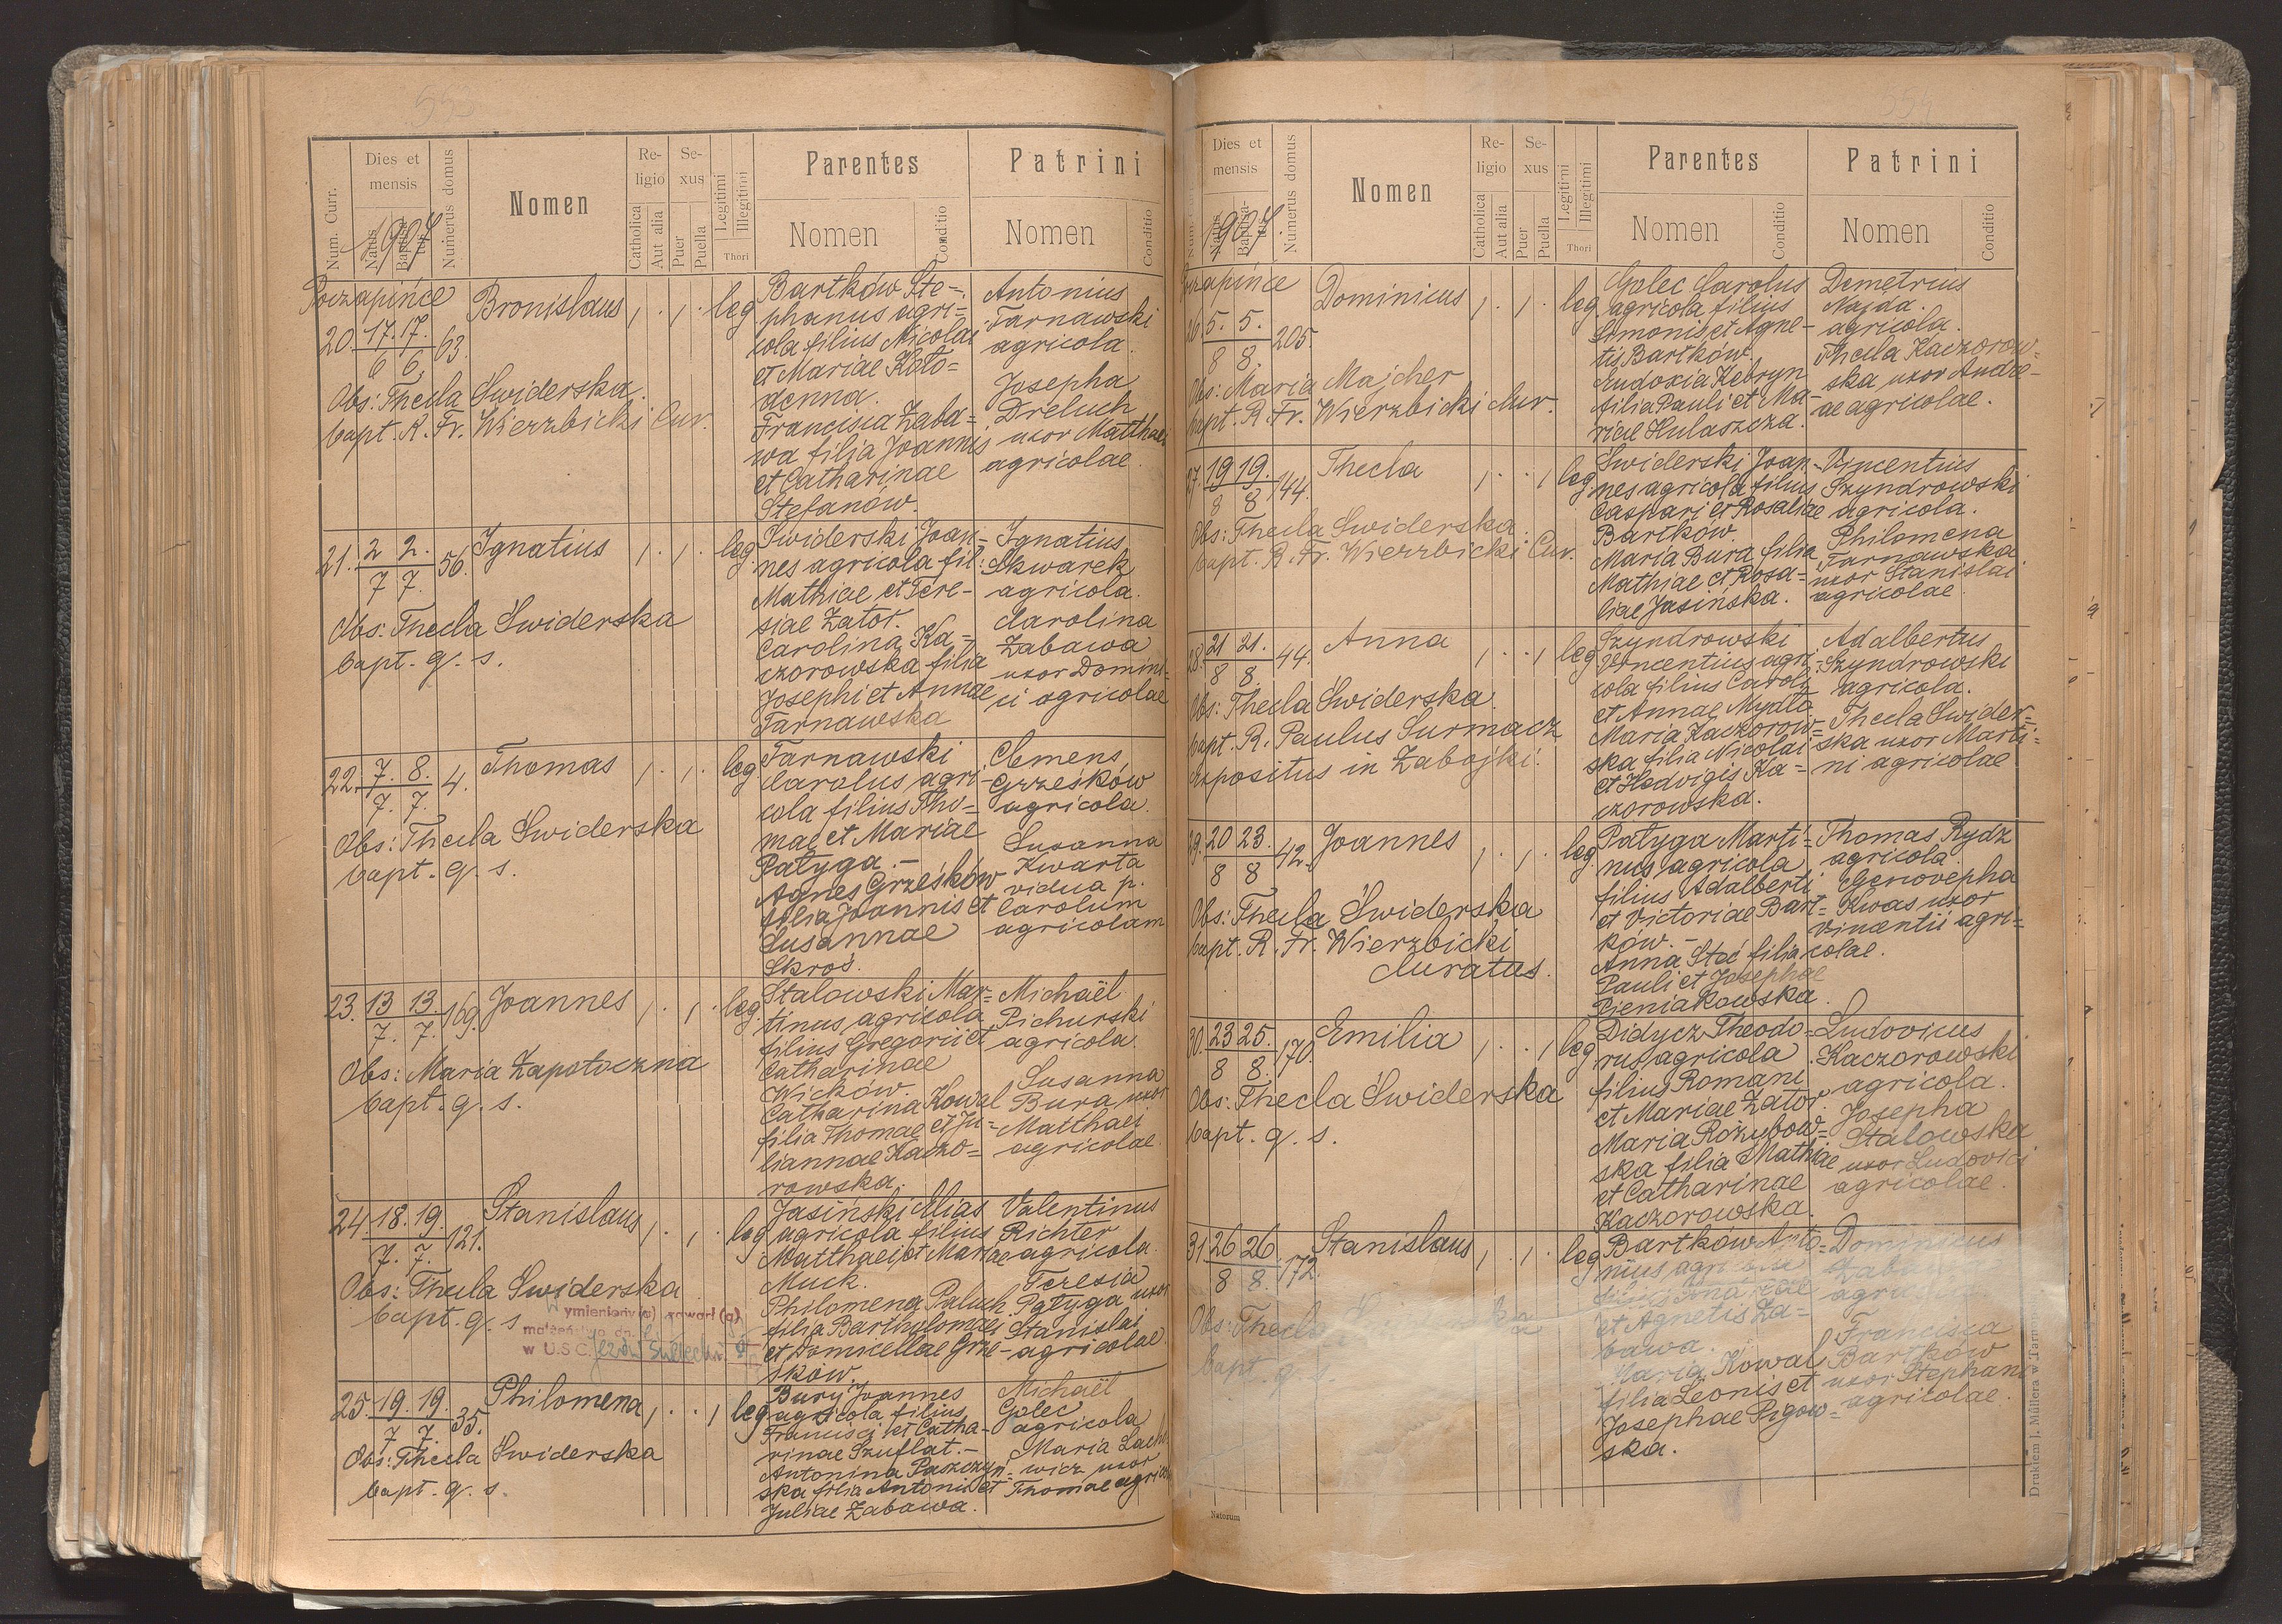 553
Num. Curr.
Dies et mensis
Natus
Baptisatus
1907
Numerus domus
Nomen
Religio
Catholica
Aut alia
Sexus
Puer
Puella
Legitimi
Illegitimi
Thori
Parentes
Nomen
Conditio
Patrini
Nomen
Conditio
Poczapińce
20. 17. 17. 63.
6 6
Bronislaus 1 . 1 . leg
Obs: Thecla Swiderska.
bapt. R. Fr. Wierzbicki Cur.
Bartków Ste=
phanus agri=
cola filius Nicolai
et Mariae Koło=
denna.
Francisca Zaba=
wa filia Joannis
et Catharinae
Stefanów.
Antonius
Tarnawski
agricola.
Josepha
Dreluch
uxor Matthaei
agricolae.
21. 2 2. 56.
7 7.
Ignatius 1 . 1 . leg.
Obs: Thecla Swiderska
bapt. q. s.
Swiderski Joan=
nes agricola fil:
Mathiae et Tere-
siae Zator.
Carolina Ka-
czorowska filia
Josephi et Annae
Tarnawska
Ignatius
Skwarek
agricola.
Carolina
Zabawa
uxor Domini=
ci agricolae
22. 7. 8. 4.
7. 7.
Thomas 1 . 1 . leg
Obs: Thecla Swiderska
bapt. q. s.
Tarnawski
Carolus agri-
cola filius Tho=
mae et Mariae
Patyga.-
Agnes Grześków
filia Joannis et
Susannae
Skroś.
Clemens
Grześków
agricola.
Susanna
Kwarta
vidua p.
Carolum
agricolam
23. 13 13. 169.
7. 7.
Joannes 1 . 1 . leg.
Obs: Maria Zapotoczna
bapt. q. s.
Stalowski Mar=
tinus agricola
filius Gregorii et
Catharinae
Wicków.
Catharina Kowal
filia Thomae et Ju=
liannae Kaczo=
rowska.
Michaël
Pichurski
agricola.
Susanna
Bura uxor
Matthaei
agricolae.
24. 18. 19. 121.
7. 7.
Stanislaus 1 . 1 . leg
Obs: Thecla Swiderska
bapt. q. s.
Wymieniony(a) zawarł(a)
małżeństwo dn.
w U.S.C.
Jasiński Elias
agricola filius
Matthaei et Mariae
Muck.
Philomena Paluch
filia Bartholomaei
et Domicellae Grze-
sków.
Valentinus
Richter
agricola.
Teresia
Patyga uxor
Stanislai
agricolae.
25. 19. 19. 35.
7 7.
Philomena 1 . . 1 leg
Obs: Thecla Swiderska
bapt. q. s.
Bury Joannes
agricola filius
Francisci et Catha-
rinae Szuflat.-
Antonina Paszczyń=
ska filia Antonii et
Juliae Zabawa.
Michaël
Golec
agricola
Maria Lach
wicz uxor
Thomae agric
Dies et mensis
Natus
Baptisatus
1907
Numerus domus
Nomen
Religio
Catholica
Aut alia
Sexus
Puer
Puella
Legitimi
Illegitimi
Thori
Parentes
Nomen
Conditio
Patrini
Nomen
Conditio
Poczapińce
26. 5. 5. 205.
8 8.
Dominicus 1 . 1 . leg
Obs: Maria Majcher
bapt. R. Fr. Wierzbicki Cur.
Golec Carolus
agricola filius
Simonis et Agne-
tis Bartków.
Eudoxia Kebryn
filia Pauli et Ma-
riae Hulaszcza.
Demetrius
Najda.
agricola.
Thecla Kaczorow=
ska uxor Andre-
ae agricolae.
27. 19 19. 144.
8 8
Thecla 1 . . 1 leg.
Obs: Thecla Swiderska.
bapt. R. Fr. Wierzbicki Cur.
Swiderski Joan-
nes agricola filius
Caspari et Rosaliae
Bartków.
Maria Bura filia
Mathiae et Rosa=
liae Jasińska.
Vincentius
Szyndrowski
agricola.
Philomena
Tarnawska
uxor Stanislai
agricolae.
28. 21 21. 44.
8 8.
Anna 1 . . 1 leg
Obs: Thecla Swiderska.
bapt. R. Paulus Surmacz
expositus in Zabojki.
Szyndrowski
Vincentius agri-
cola filius Caroli
et Annae Mydło
Maria Kaczorow=
ska filia Nicolai
et Hedvigis Ka=
czorowska.
Adalbertus
Szyndrowski
agricola.
Thecla Swider=
ska uxor Marti=
ni agricolae
29. 20 23. 42.
8 8
Joannes 1 . 1 . leg.
Obs: Thecla Swiderska
bapt. R. Fr. Wierzbicki
Curatus.
Patyga Marti=
nus agricola
filius Adalberti
et Victoriae Bart=
ków.-
Anna Steć filia
Pauli et Josephae
Pieniakowska.
Thomas Rydz
agricola.
Genovepha
Kwas uxor
Vincentii agri=
colae.
30. 23 25. 170.
8 8.
Emilia 1 . . 1 leg
Obs: Thecla Swiderska
bapt. q. s.
Didycz Theodo=
rus agricola
filius Romani
et Mariae Zator.
Maria Rożybow=
ska filia Mathiae
et Catharinae
Kaczorowska.
Ludovicus
Kaczorowski
agricola.
Josepha
Stalowska
uxor Ludovici
agricolae.
31. 26 26. 172.
8 8.
Stanislaus 1 . 1 . leg
Obs: Thecla
bapt. q. s.
Bartków Anto=
nius agricola
filius Andreae
et Agnetis Za=
bawa.
Maria Kowal
filia Leonis et
Josephae Pigow=
ska.
Dominicus
agricola.
Francisca
Bartków
uxor Stephani
agricolae.
Natorum
Drukiem J. Müllera w Tarnopolu